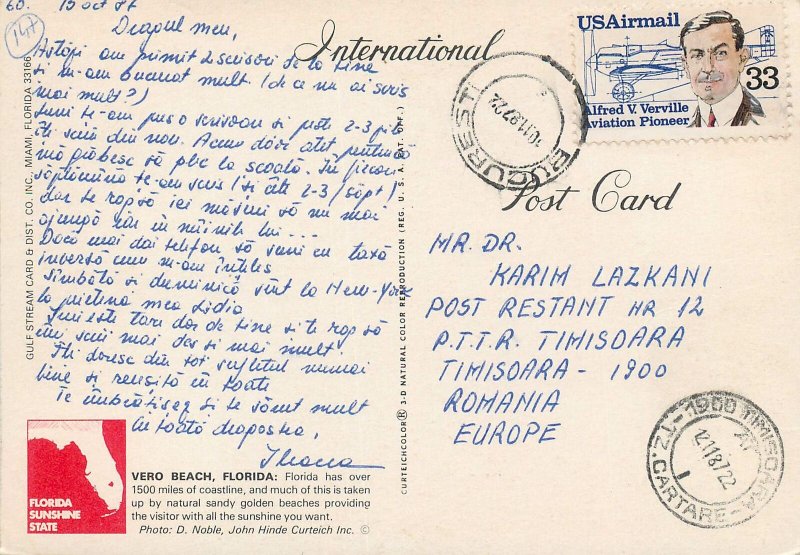 60. 15 oct 87
147
Dragul meu,
Astăzi am primit 2 scrisori de la tine
și m-am bucurat mult. (de ce nu ai scris
mai mult?)
Luni te-am pus o scrisoare și peste 2-3 zile
îți scriu din nou. Acum doar atât pentru că
mă grăbesc să plec la școală. În fiecare
săptămînă te-am scris și câte 2-3 (săpt)
dar te rog să iei măsuri să nu mai
ajungă iar în mîinile lui ...
Dacă mai dai telefon să suni cu taxă
inversă cum ne-am înțeles
sîmbătă și duminică sînt la New-York
la prietena mea Lidia
Îmi este tare dor de tine și te rog să
îmi scrii mai des și mai mult.
Îți doresc din tot sufletul numai
bine și reușită în toate
Te îmbrățișez și te sărut mult
cu toată dragostea,
Ileana
GULF STREAM CARD & DIST. CO. INC., MIAMI, FLORIDA 33166
FLORIDA
SUNSHINE
STATE
VERO BEACH, FLORIDA: Florida has over
1500 miles of coastline, and much of this is taken
up by natural sandy golden beaches providing
the visitor with all the sunshine you want.
Photo: D. Noble, John Hinde Curteich Inc. ©
CURTEICHCOLOR® 3-D NATURAL COLOR REPRODUCTION (REG. U.S.A. PAT. OFF.)
International
Post Card
USAirmail
33
Alfred V. Verville
Aviation Pioneer
BUCUREȘTI
10.11.87.22
MR. DR.
KARIM LAZKANI
POST RESTANT NR 12
P.T.T.R. TIMISOARA
TIMISOARA - 1900
ROMANIA
EUROPE
1900 TIMISOARA
12.11.87.22
CARTARE